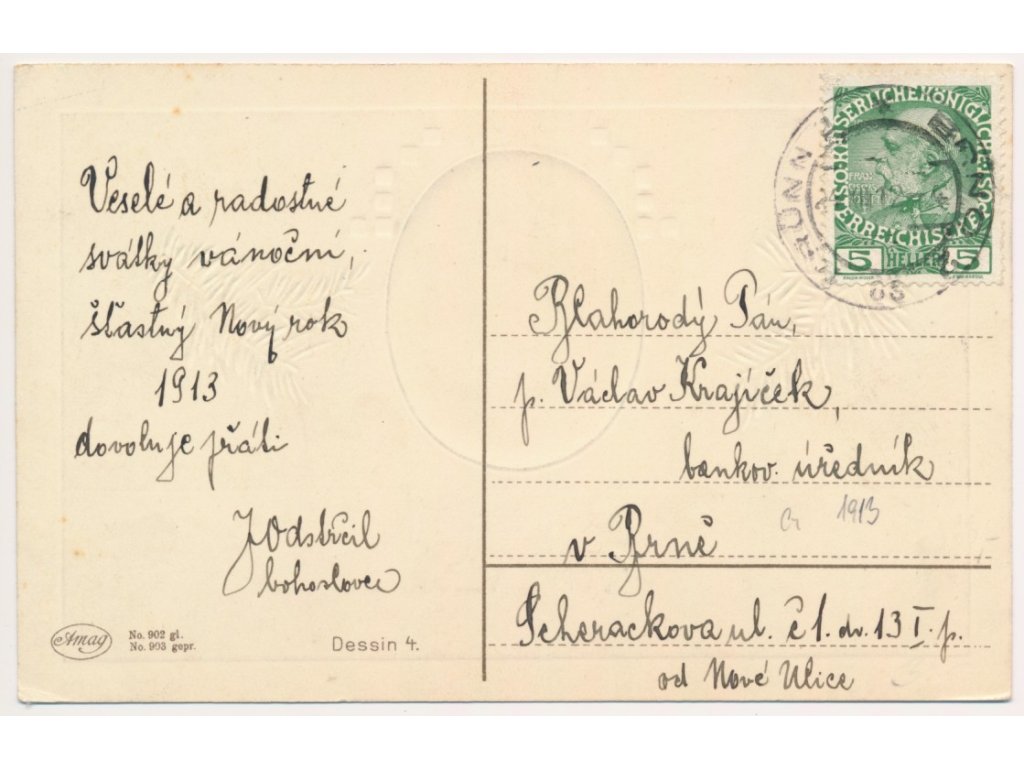 Veselé a radostné
svátky vánoční,
šťastný Nový rok
1913
dovoluje přáti
J Odstrčil
bohoslovec
Amag
No. 902 gl.
No. 903 gepr.
Dessin 4.
BRÜNN
BRNO
KAISERLICHE KÖNIGLICHE
ÖSTERREICHISCHE
5 HELLER 5
Blahorodý Pán,
p. Václav Krajíček,
bankov. úředník
1913
v Brně
Scherackova ul. č 1. dv. 13 I. p.
od Nové Ulice